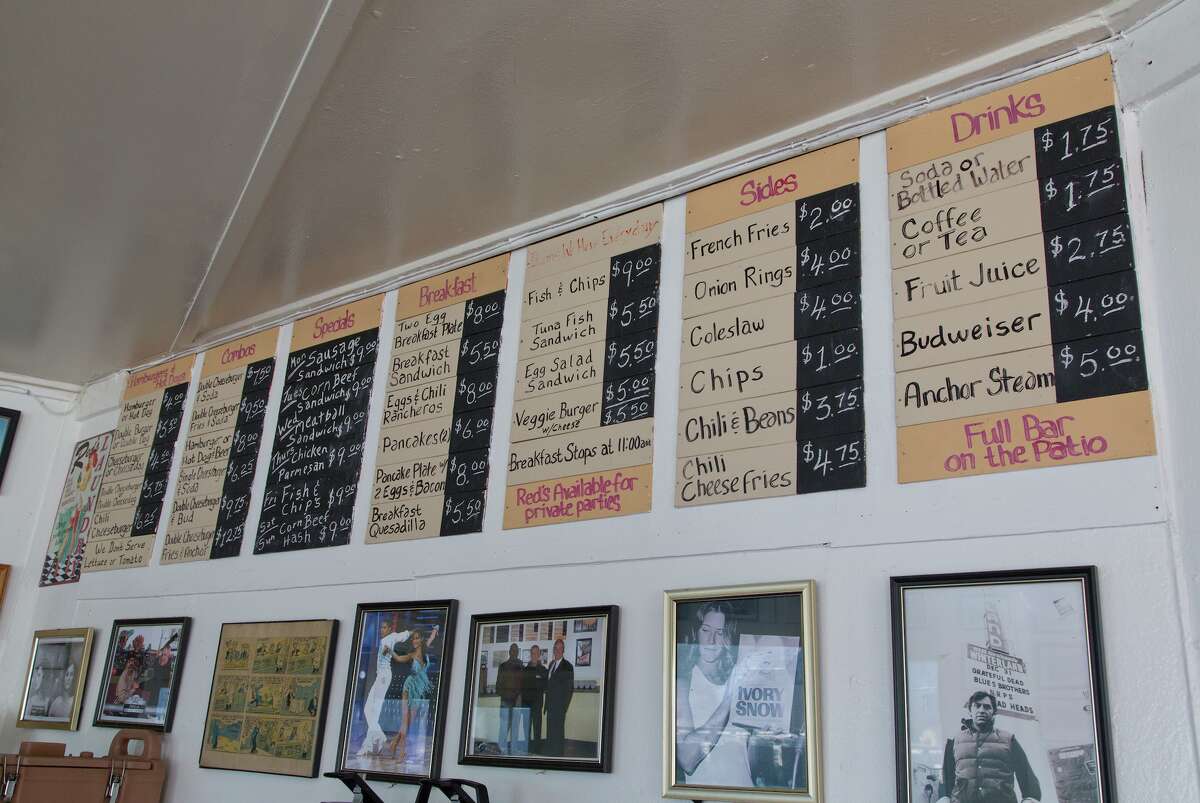 Hamburgers &
Hot Dogs
Hamburger
or Hot Dog
Double Burger
or Double Dog
Cheeseburger
Double Cheeseburger
Chili
Cheeseburger
$6.25
We Dont Serve
Lettuce or Tomato
Combos
Double Cheeseburger
& Soda
$7.50
Double Cheeseburger
Fries & Soda
$9.50
Hamburger or
Hot Dog & Beer
$8.00
Single Cheeseburger
& Soda
$6.25
Double Cheeseburger
& Bud
$9.75
Double Cheeseburger
Fries & Anchor
$12.75
Specials
Mon Sausage
Sandwich $9.00
Tues Corn Beef
Sandwich $9.00
Wed Meatball
Sandwich $9.00
Thurs Chicken
Parmesan $9.00
Fri Fish &
Chips $9.00
Sat Corn Beef
Sun Hash $9.00
Breakfast
Two Egg
Breakfast Plate
$8.00
Breakfast
Sandwich
$5.50
Eggs & Chili
Rancheros
$8.00
Pancakes (2)
$6.00
Pancake Plate w/
2 Eggs & Bacon
$8.00
Breakfast
Quesadilla
$5.50
We Have Everyday
Fish & Chips
$9.00
Tuna Fish
Sandwich
$5.50
Egg Salad
Sandwich
$5.50
Veggie Burger
w/Cheese
$5.00
$5.50
Breakfast Stops at 11:00am
Red's Available for
private parties
Sides
French Fries
$2.00
Onion Rings
$4.00
Coleslaw
$4.00
Chips
$1.00
Chili & Beans
$3.75
Chili
Cheese Fries
$4.75
Drinks
Soda or
Bottled Water
$1.75
Coffee
or Tea
$1.75
Fruit Juice
$2.75
Budweiser
$4.00
Anchor Steam
$5.00
Full Bar
on the Patio
IVORY
SNOW
WINTERLAND
DEC 31
GRATEFUL DEAD
BLUES BROTHERS
N R P S
EAD HEADS